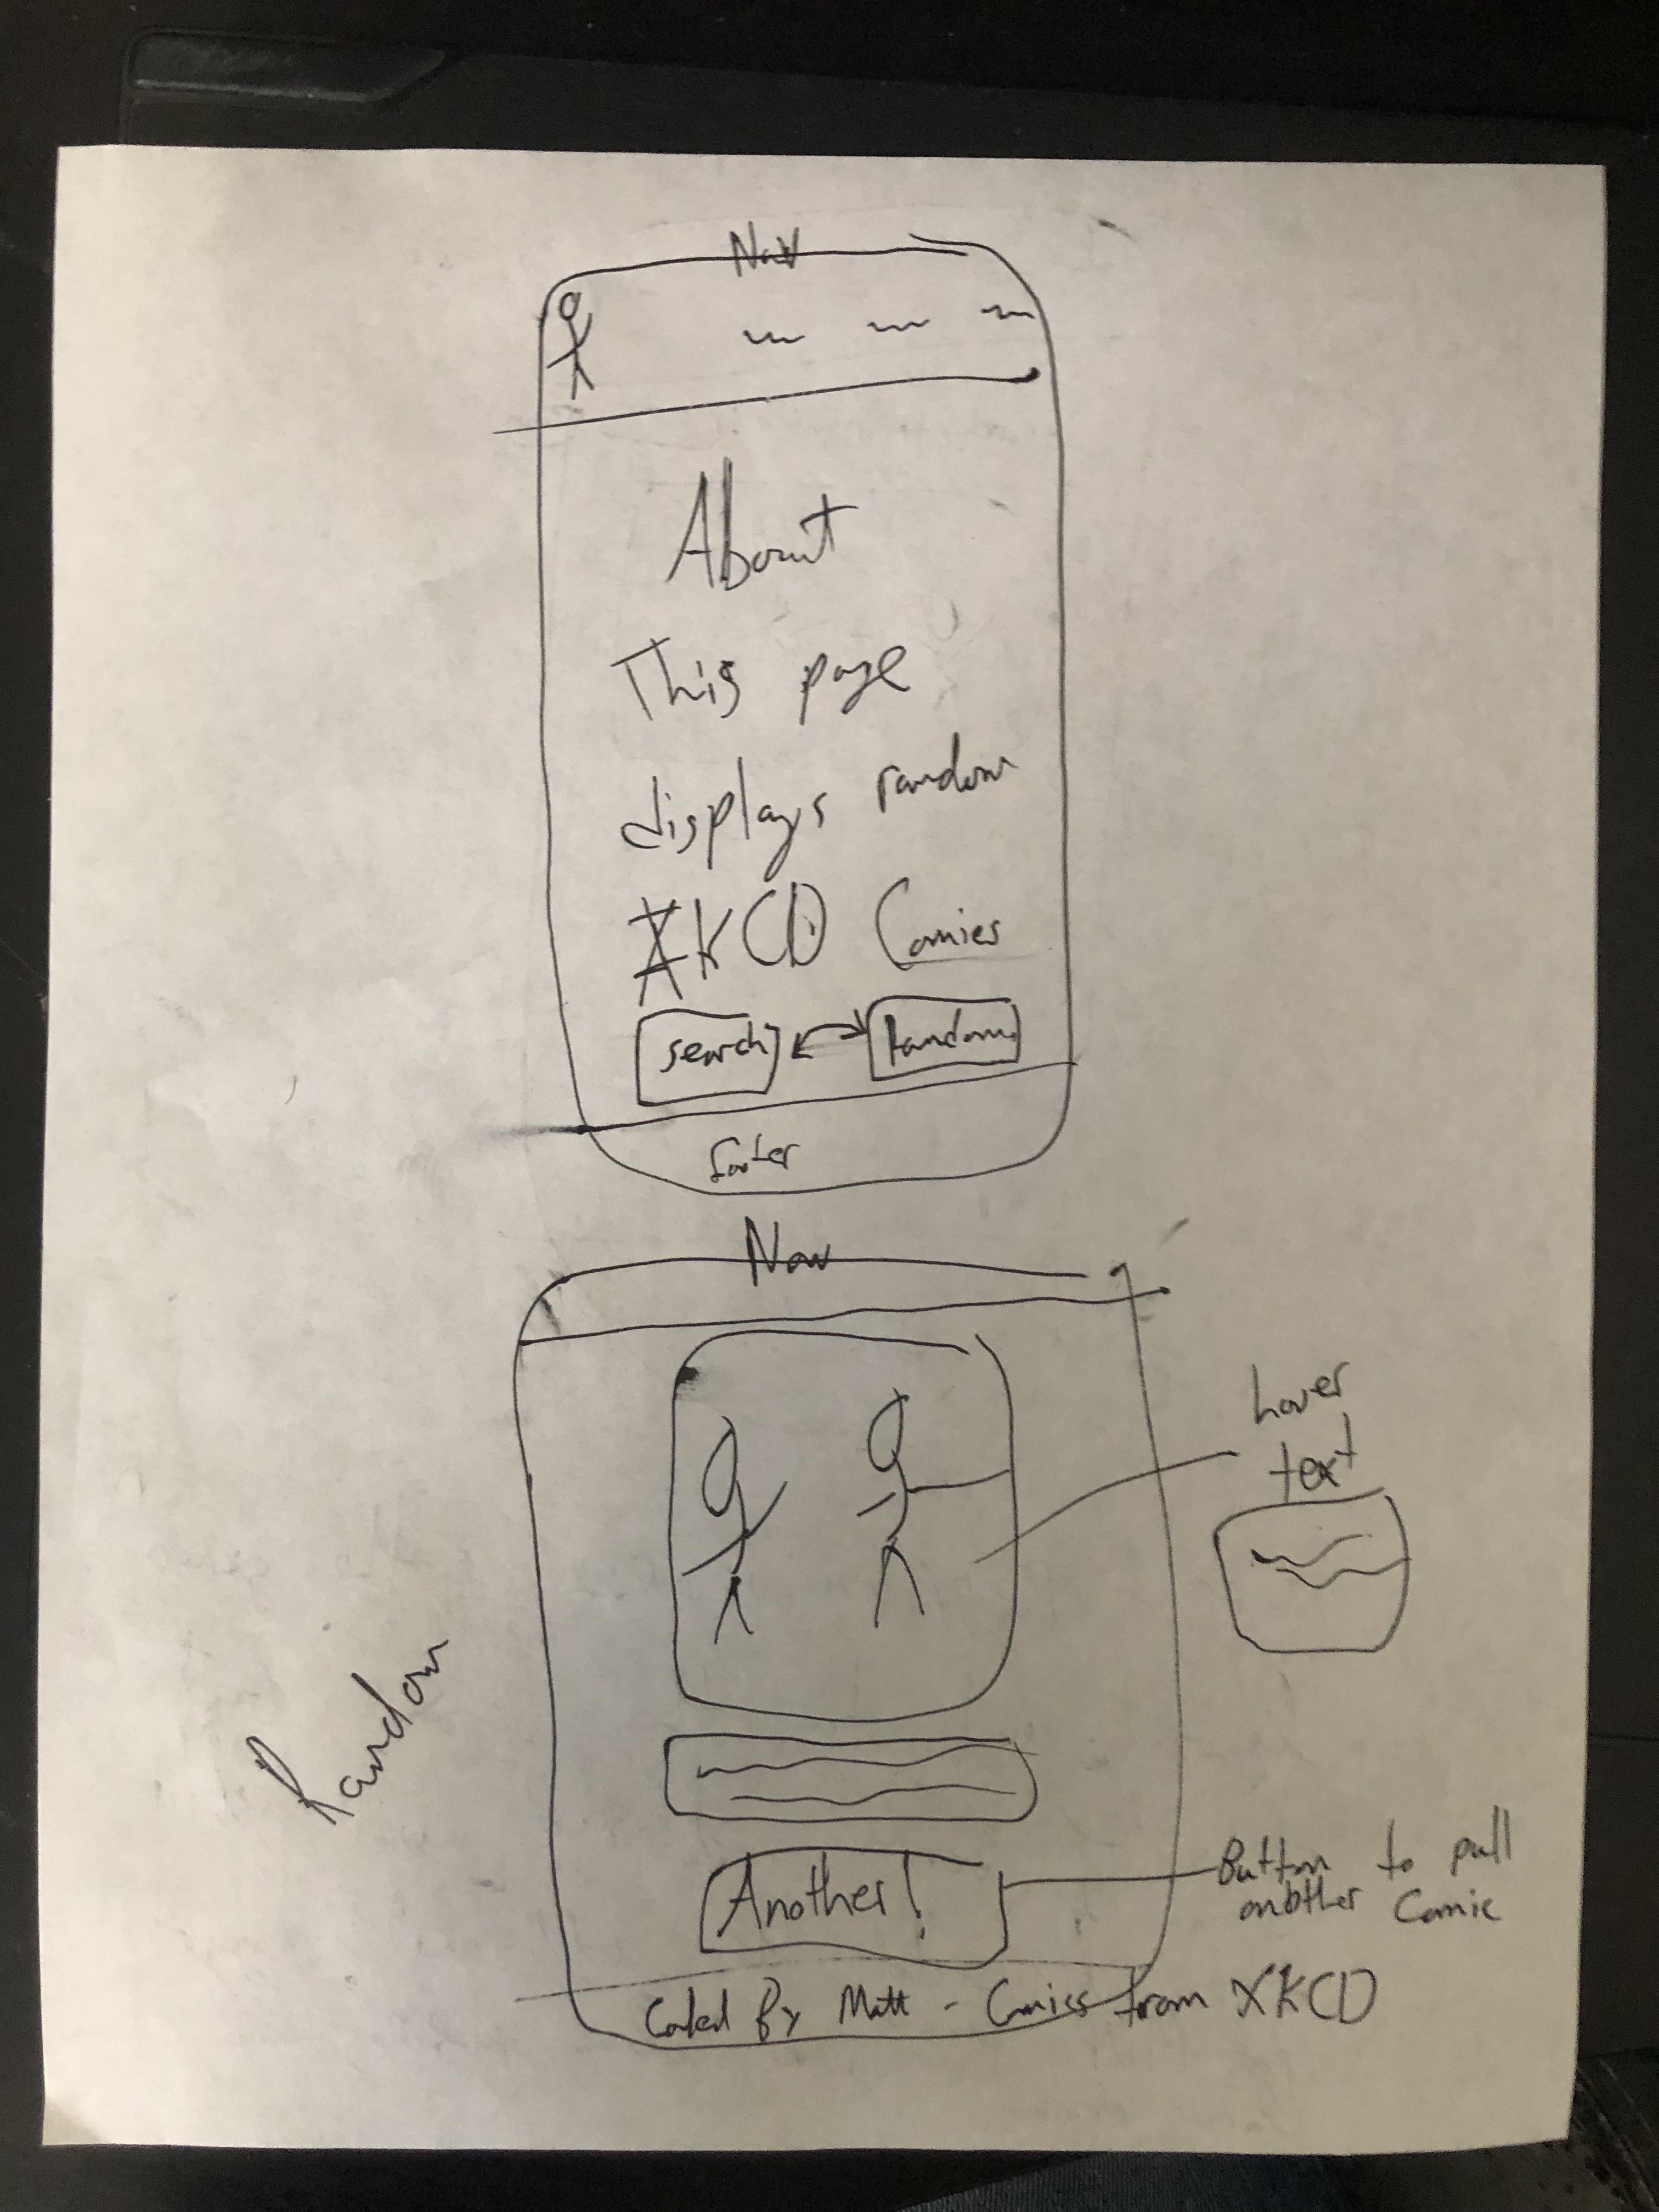 Nav
About
This page
displays random
XKCD Comics
search
Random
footer
Nav
hover
text
Random
Another!
Button to pull
another Comic
Coded By Matt - Comics from XKCD